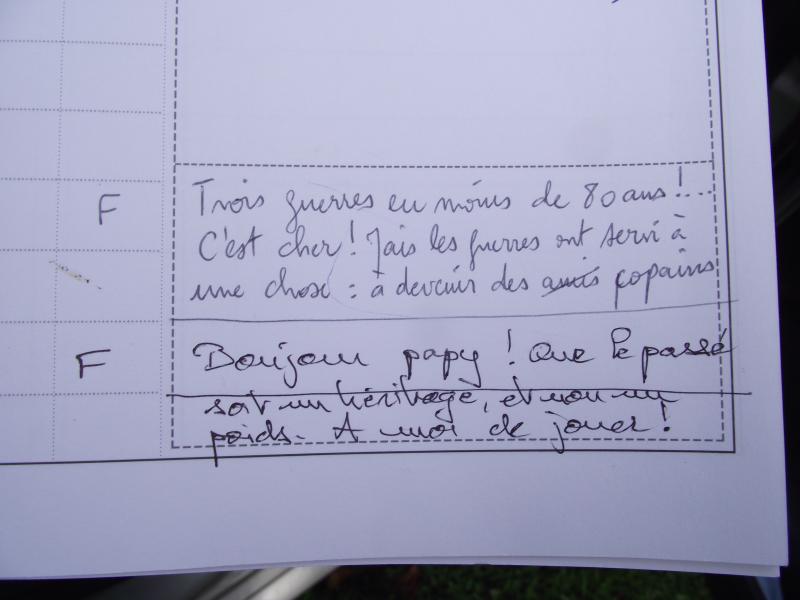 F
Trois guerres en moins de 80 ans !...
C'est cher ! Mais les guerres ont servi à
une chose : à devenir des amis copains
F
Bonjour papy ! Que le passé
soit un héritage, et non un
poids. A moi de jouer !